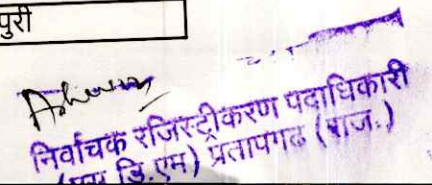 पुरी
निर्वाचक रजिस्ट्रीकरण पदाधिकारी
(एस डि.एम) प्रतापगढ (राज.)